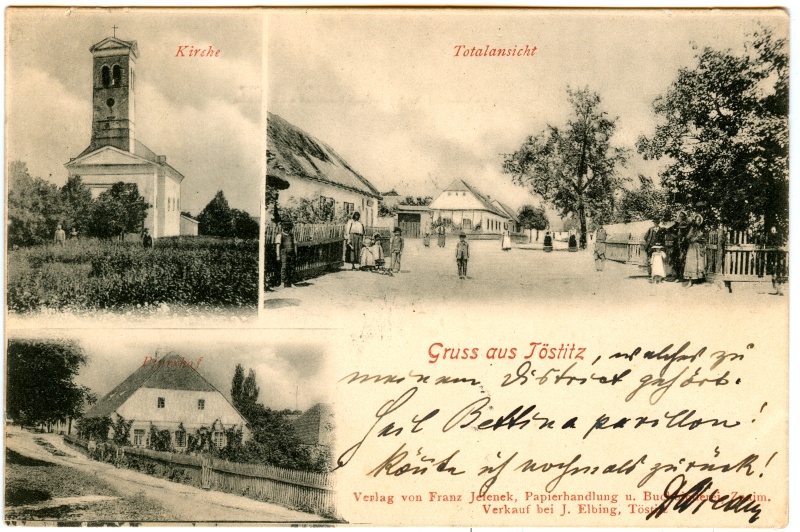 Kirche
Totalansicht
Pfarrhof
Gruss aus Töstitz, welches zu
meinem District gehört.
Heil Bettina pavillon!
Könnte ich nochmals zurück!
Verlag von Franz Jelenek, Papierhandlung u. Znaim.
Verkauf bei J. Elbing, Töstitz